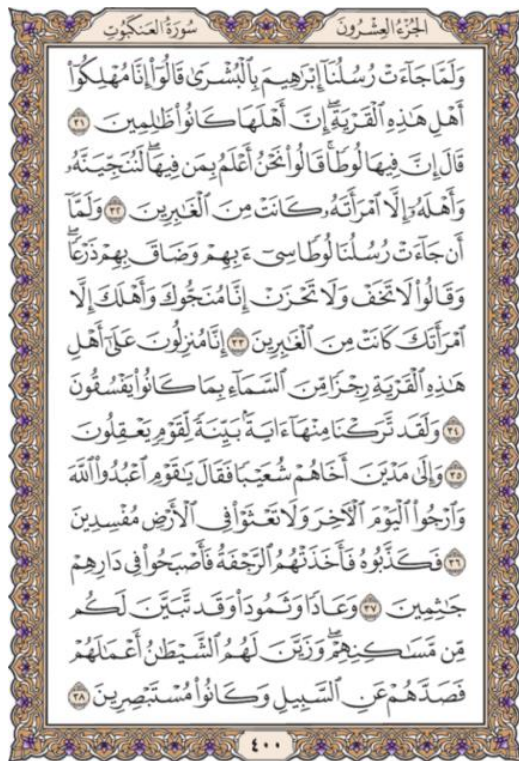 الجُزءُ العِشْرُونَ سُورَةُ العَنكَبُوتِ
وَلَمَّا جَآءَتْ رُسُلُنَآ إِبْرَٰهِيمَ بِٱلْبُشْرَىٰ قَالُوٓاْ إِنَّا مُهْلِكُوٓاْ
أَهْلِ هَٰذِهِ ٱلْقَرْيَةِۖ إِنَّ أَهْلَهَا كَانُواْ ظَٰلِمِينَ ٣١
قَالَ إِنَّ فِيهَا لُوطٗاۚ قَالُواْ نَحْنُ أَعْلَمُ بِمَن فِيهَاۖ لَنُنَجِّيَنَّهُۥ
وَأَهْلَهُۥٓ إِلَّا ٱمْرَأَتَهُۥ كَانَتْ مِنَ ٱلْغَٰبِرِينَ ٣٢ وَلَمَّآ
أَن جَآءَتْ رُسُلُنَا لُوطٗا سِيٓءَ بِهِمْ وَضَاقَ بِهِمْ ذَرْعٗاۖ
وَقَالُواْ لَا تَخَفْ وَلَا تَحْزَنْ إِنَّا مُنَجُّوكَ وَأَهْلَكَ إِلَّا
ٱمْرَأَتَكَ كَانَتْ مِنَ ٱلْغَٰبِرِينَ ٣٣ إِنَّا مُنزِلُونَ عَلَىٰٓ أَهْلِ
هَٰذِهِ ٱلْقَرْيَةِ رِجْزٗا مِّنَ ٱلسَّمَآءِ بِمَا كَانُواْ يَفْسُقُونَ
٣٤ وَلَقَد تَّرَكْنَا مِنْهَآ ءَايَةَۢ بَيِّنَةٗ لِّقَوْمٖ يَعْقِلُونَ
٣٥ وَإِلَىٰ مَدْيَنَ أَخَاهُمْ شُعَيْبٗا فَقَالَ يَٰقَوْمِ ٱعْبُدُواْ ٱللَّهَ
وَٱرْجُواْ ٱلْيَوْمَ ٱلْأٓخِرَ وَلَا تَعْثَوْاْ فِي ٱلْأَرْضِ مُفْسِدِينَ
٣٦ فَكَذَّبُوهُ فَأَخَذَتْهُمُ ٱلرَّجْفَةُ فَأَصْبَحُواْ فِي دَارِهِمْ
جَٰثِمِينَ ٣٧ وَعَادٗا وَثَمُودَاْ وَقَد تَّبَيَّنَ لَكُم
مِّن مَّسَٰكِنِهِمْۖ وَزَيَّنَ لَهُمُ ٱلشَّيْطَٰنُ أَعْمَٰلَهُمْ
فَصَدَّهُمْ عَنِ ٱلسَّبِيلِ وَكَانُواْ مُسْتَبْصِرِينَ ٣٨
٤٠٠